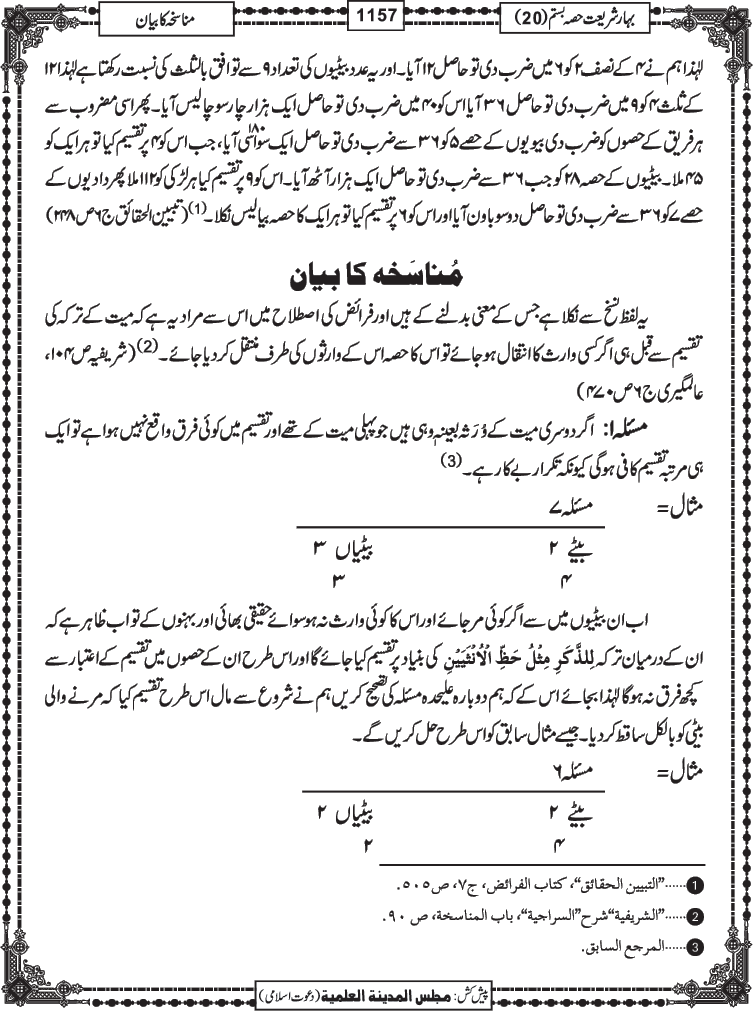 بہار شریعت حصہ بستم (20)
1157
مناسخہ کا بیان
لہٰذا ہم نے ۴ کے نصف ۲ کو ۶ میں ضرب دی تو حاصل ۱۲ آیا۔ اور یہ عدد بیٹیوں کی تعداد ۹ سے توافق بالثلث کی نسبت رکھتا ہے لہٰذا ۱۲
کے ثلث ۴ کو ۹ میں ضرب دی تو حاصل ۳۶ آیا اس کو ۴۰ میں ضرب دی تو حاصل ایک ہزار چار سو چالیس آیا۔ پھر اسی مضروب سے
ہر فریق کے حصوں کو ضرب دی بیویوں کے حصے ۵ کو ۳۶ سے ضرب دی تو حاصل ایک سو اَسّی ۱۸۰ آیا، جب اس کو ۴ پر تقسیم کیا تو ہر ایک کو
۴۵ ملا۔ بیٹیوں کے حصہ ۲۸ کو جب ۳۶ سے ضرب دی تو حاصل ایک ہزار آٹھ آیا۔ اس کو ۹ پر تقسیم کیا ہر لڑکی کو ۱۱۲ ملا پھر دادیوں کے
حصے ۷ کو ۳۶ سے ضرب دی تو حاصل دو سو باون آیا اور اس کو ۶ پر تقسیم کیا تو ہر ایک کا حصہ بیالیس نکلا۔ (1) (تبیین الحقائق ج ۶ ص ۲۴۸)
مُناسَخہ کا بیان
یہ لفظ نسخ سے نکلا ہے جس کے معنی بدلنے کے ہیں اور فرائض کی اصطلاح میں اس سے مراد یہ ہے کہ میت کے ترکہ کی
تقسیم سے قبل ہی اگر کسی وارث کا انتقال ہو جائے تو اس کا حصہ اس کے وارثوں کی طرف منتقل کر دیا جائے۔ (2) (شریفیہ ص ۱۰۴،
عالمگیری ج ۶ ص ۴۷۰)
مسئلہ ۱: اگر دوسری میت کے وُرَثہ بعینہٖ وہی ہیں جو پہلی میت کے تھے اور تقسیم میں کوئی فرق واقع نہیں ہوا ہے تو ایک
ہی مرتبہ تقسیم کافی ہوگی کیونکہ تکرار بے کار ہے۔ (3)
مثال = مسئلہ ۷
بیٹے ۲ بیٹیاں ۳
۴ ۳
اب ان بیٹیوں میں سے اگر کوئی مر جائے اور اس کا کوئی وارث نہ ہو سوائے حقیقی بھائی اور بہنوں کے تو اب ظاہر ہے کہ
ان کے درمیان ترکہ لِلذَّکَرِ مِثْلُ حَظِّ الْاُنْثَیَیْنِ کی بنیاد پر تقسیم کیا جائے گا اور اس طرح ان کے حصوں میں تقسیم کے اعتبار سے
کچھ فرق نہ ہوگا لہٰذا بجائے اس کے کہ ہم دوبارہ علیحدہ مسئلہ کی تصحیح کریں ہم نے شروع سے مال اس طرح تقسیم کیا کہ مرنے والی
بیٹی کو بالکل ساقط کر دیا۔ جیسے مثال سابق کو اس طرح حل کریں گے۔
مثال = مسئلہ ۶
بیٹے ۲ بیٹیاں ۲
۴ ۲
1 ......"التبیین الحقائق"، کتاب الفرائض، ج۷، ص۵۰۵.
2 ......"الشریفیة" شرح "السراجیة"، باب المناسخة، ص ۹۰.
3 ......المرجع السابق.
پیش کش: مجلس المدینة العلمیة (دعوت اسلامی)